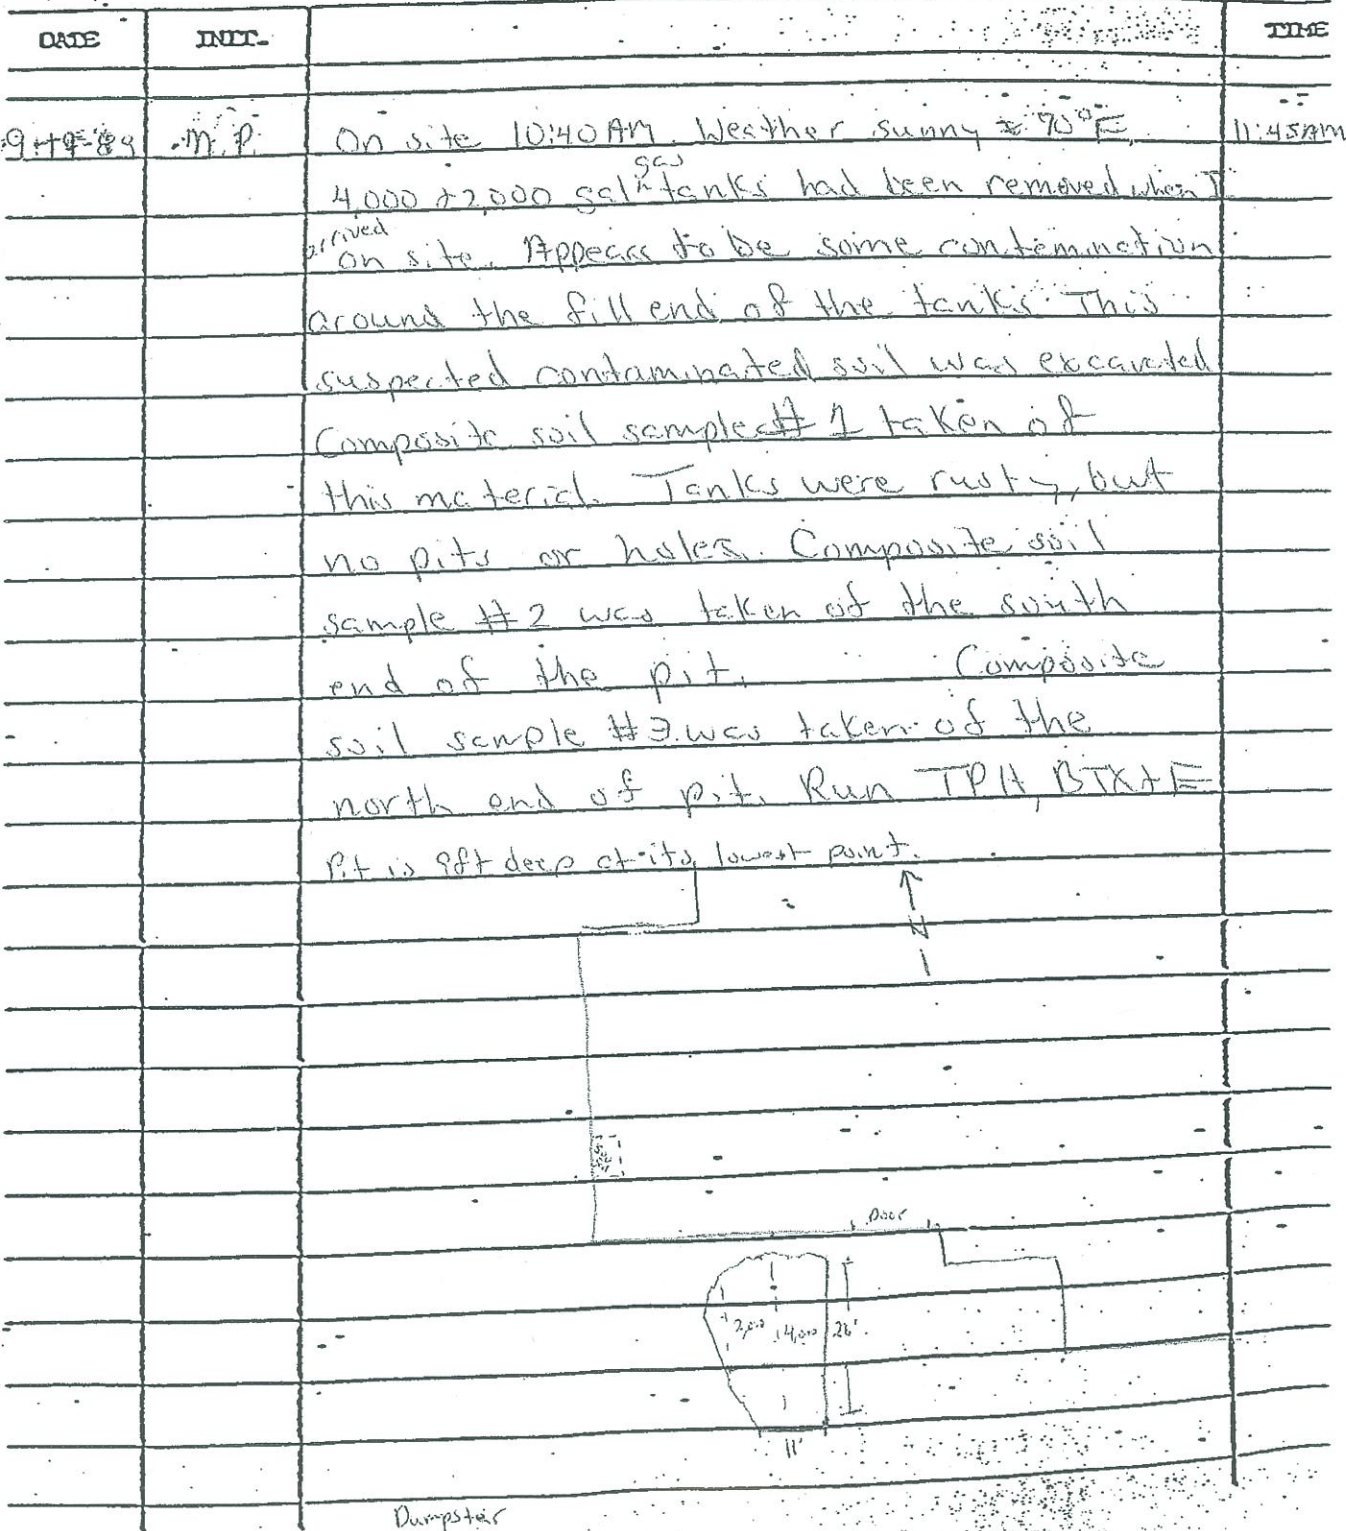 DATE INIT. TIME
9-19-89 M.P. On site 10:40 AM. Weather sunny ≈ 70°F. 11:45AM
4,000 + 2,000 gal gas tanks had been removed when I
arrived
on site. Appears to be some contemination
around the fill end of the tanks. This
suspected contaminated soil was excavated
Composite soil sample #1 taken of
this material. Tanks were rusty, but
no pits or holes. Composite soil
sample #2 was taken of the south
end of the pit. Composite
soil sample #3 was taken of the
north end of pit. Run TPH, BTX+E
Pit is 9ft deep at its lowest point.
N
Door
2,000 4,000 26'
11'
Dumpster